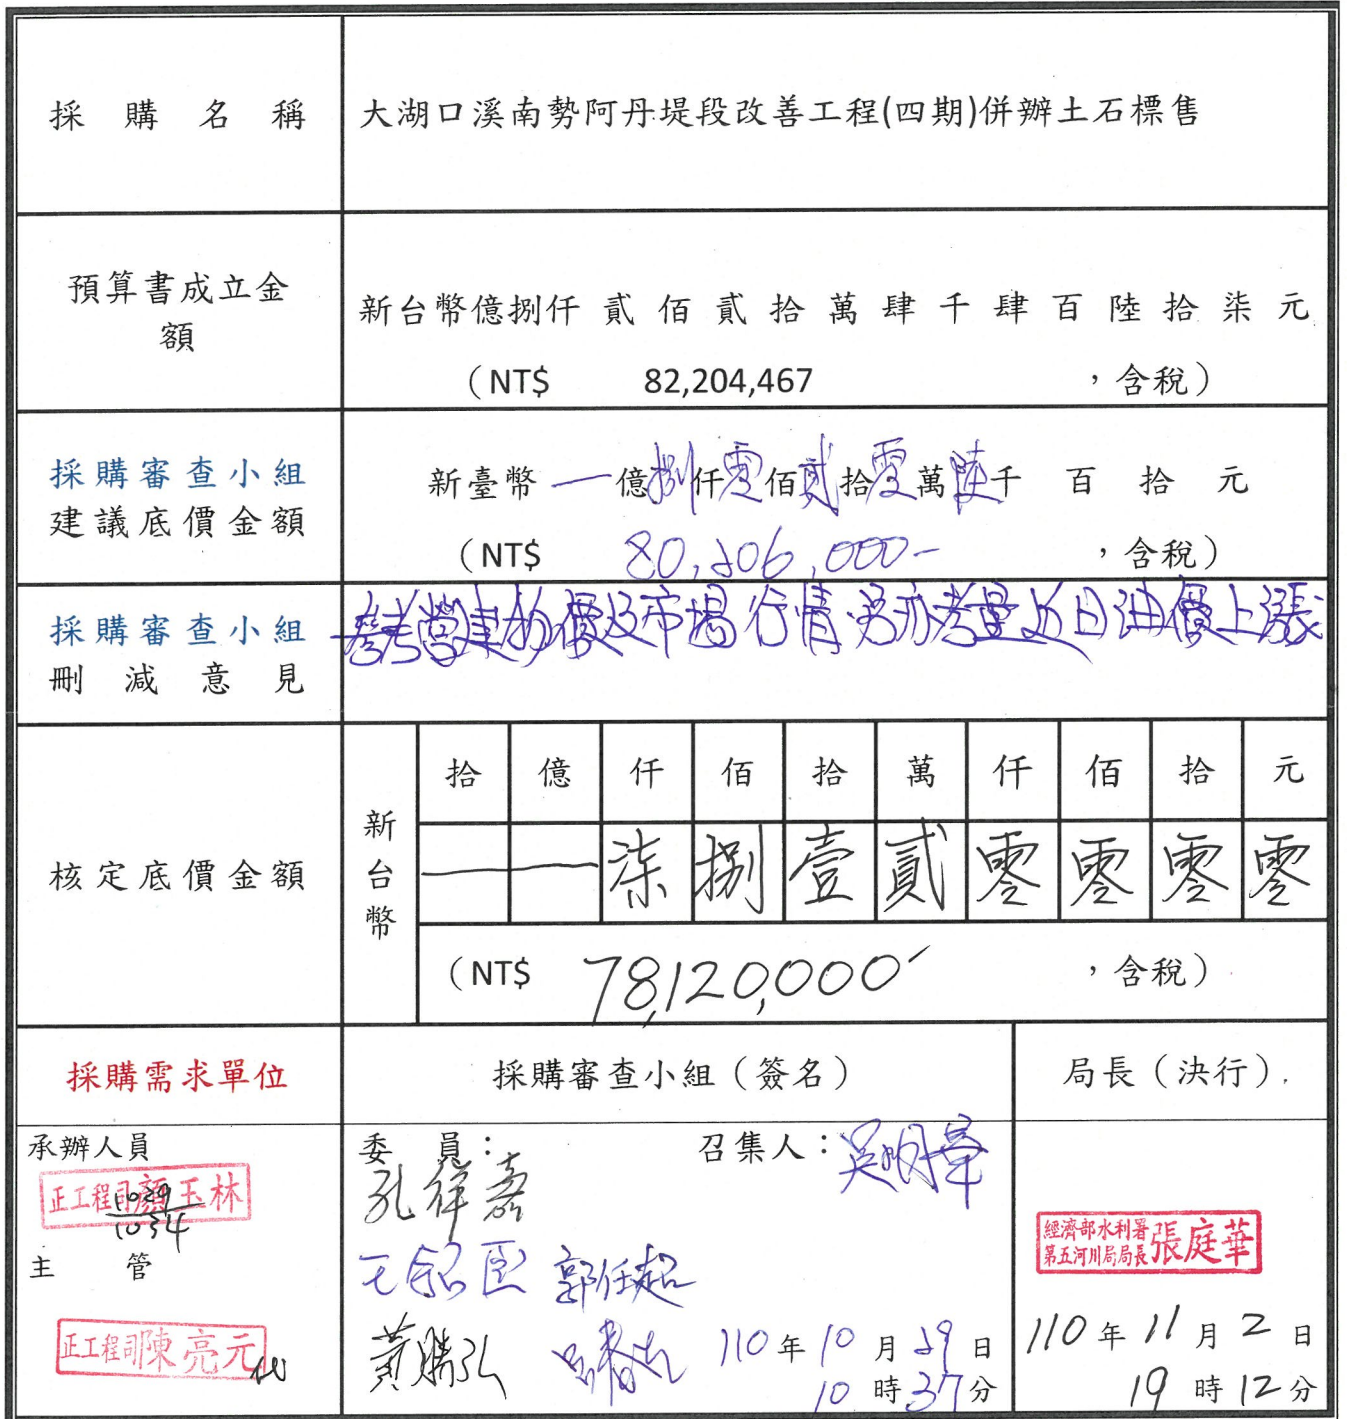 採購名稱
大湖口溪南勢阿丹堤段改善工程(四期)併辦土石標售
預算書成立金額
新台幣億捌仟貳佰貳拾萬肆千肆百陸拾柒元
（NT$ 82,204,467 ，含稅）
採購審查小組
建議底價金額
新臺幣一億捌仟零佰貳拾零萬陸千 百 拾 元
（NT$ 80,206,000- ，含稅）
採購審查小組
刪減意見
參考營建物價及市場行情另亦考量近日油價上漲
核定底價金額
新台幣
拾 億 仟 佰 拾 萬 仟 佰 拾 元
一 一 柒 捌 壹 貳 零 零 零 零
（NT$ 78,120,000 ，含稅）
採購需求單位
採購審查小組（簽名）
局長（決行）
承辦人員
正工程司顏玉林
1029
1034
主管
正工程司陳亮元
委員：
召集人：
孔祥嘉
王紹臣
郭任超
黃勝弘
110年10月29日
10時37分
經濟部水利署
第五河川局局長張庭華
110年11月2日
19時12分